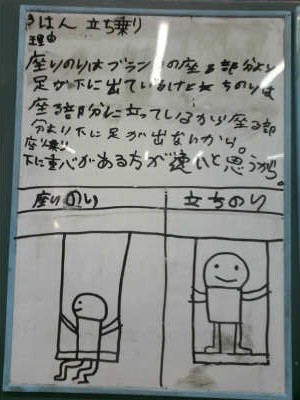 はん 立ち乗り
理由
座りのりはブランコの座る部分より
足が下に出ているけど立ちのりは
座る部分に立っているから座る部
分より下に足が出ないから。
座り乗り
下に重心がある方が速いと思うから。
座りのり
立ちのり